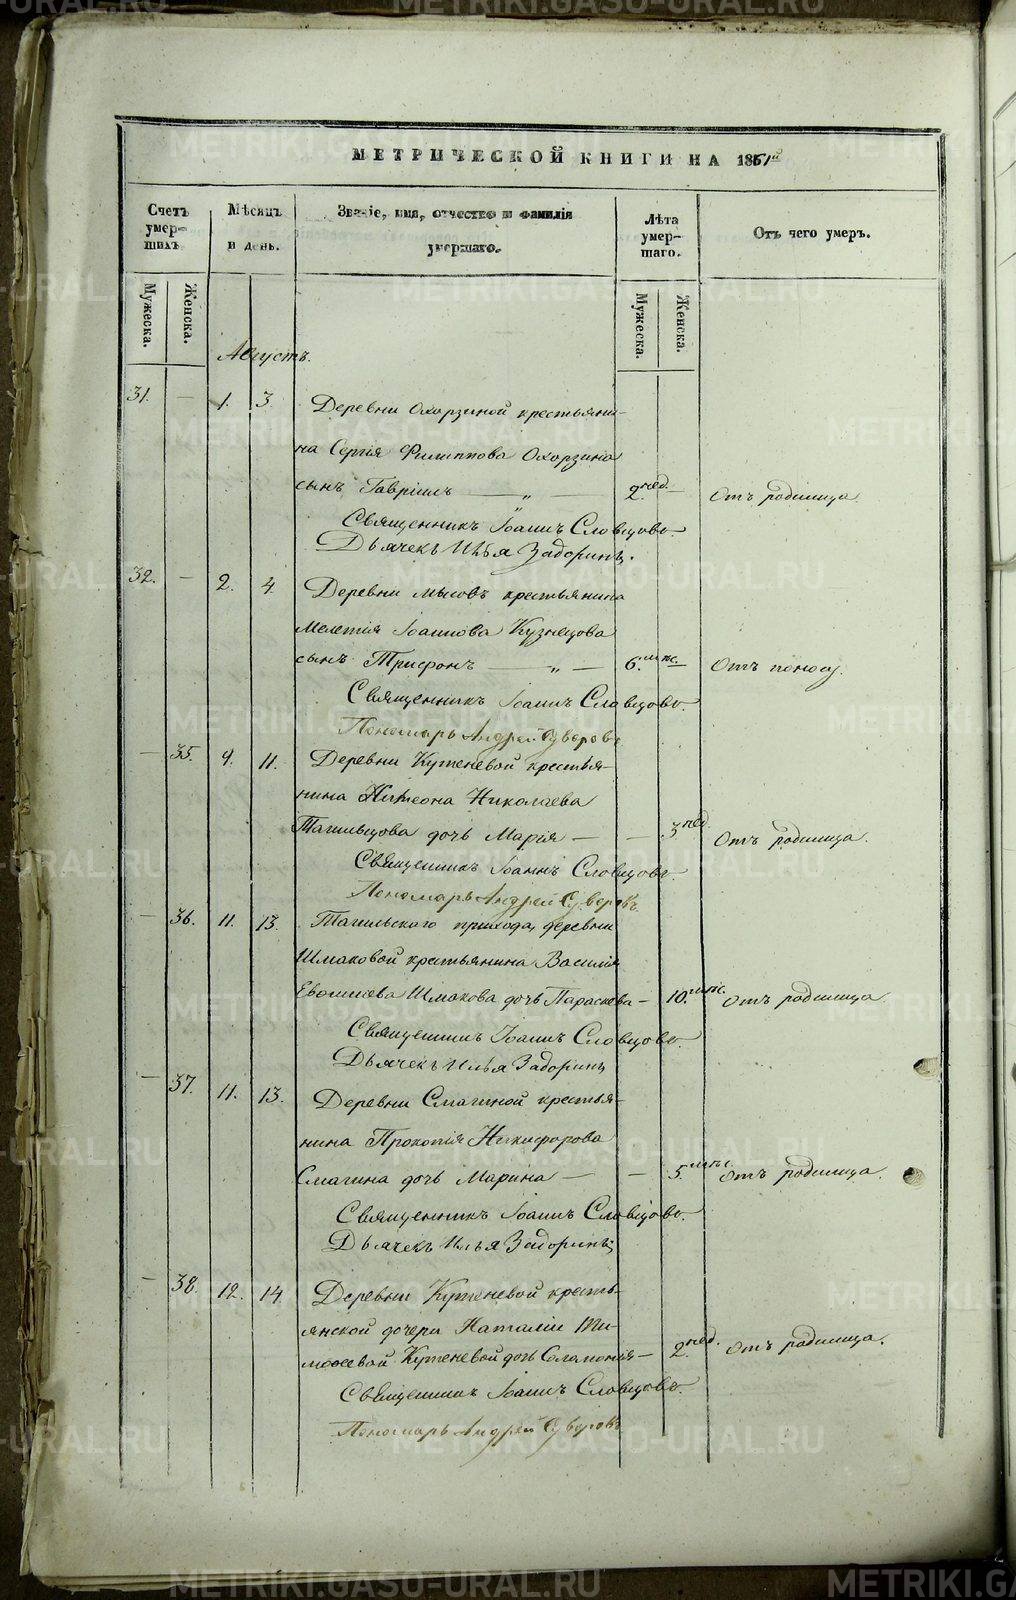 МЕТРИЧЕСКОЙ КНИГИ НА 1861й
Счетъ умер-шихъ.
Мѣсяцъ и день.
Званіе, имя, отчество и фамилія умершаго.
Лѣта умер-шаго.
Отъ чего умеръ.
Мужеска.
Женска.
Мужеска.
Женска.
Августъ.
31. — 1. 3. Деревни Охорзиной крестьяни-
на Сергія Филиппова Охорзина
сынъ Гавріилъ — „ — 2. нед. — Отъ родимца.
Священникъ Іоаннъ Словцовъ.
Дьячекъ Илья Задоринъ.
32. — 2. 4. Деревни Мысовъ крестьянина
Мелетія Іоаннова Кузнецова
сынъ Трифонъ — „ — 6. мѣс. Отъ поносу.
Священникъ Іоаннъ Словцовъ.
Пономарь Андрей Суворовъ
— 35. 9. 11. Деревни Кутеневой крестья-
нина Николаева
Тагильцова дочь Марія — — 3 нед. Отъ родимца.
Священникъ Іоаннъ Словцовъ.
Пономарь Андрей Суворовъ.
— 36. 11. 13. Тагильскаго прихода, деревни
Шмаковой крестьянина Василія
Шмакова дочь Параскева — 10. мѣс. Отъ родимца
Священникъ Іоаннъ Словцовъ.
Дьячекъ Илья Задоринъ
— 37. 11. 13. Деревни Смагиной крестья-
нина Прокопія Никифорова
Смагина дочь Марина — — 5. мѣс. Отъ родимца.
Священникъ Іоаннъ Словцовъ.
Дьячекъ Илья Задоринъ
— 38. 12. 14 Деревни Кутеневой кресть-
янской дочери Наталіи Ти-
моѳеевой Кутеневой дочь Соломонія — 2. нед. Отъ родимца.
Священникъ Іоаннъ Словцовъ.
Пономарь Андрей Суворовъ
METRIKI.GASO-URAL.RU